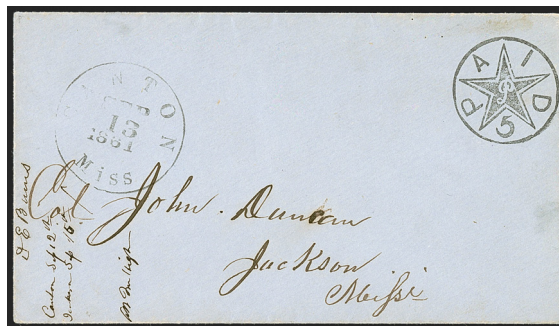 CANTON
SEP
13
1861
Miss
PAID
P
5
Col John Duncan
Jackson
Missi
D E Barns
Canton Sep 12th